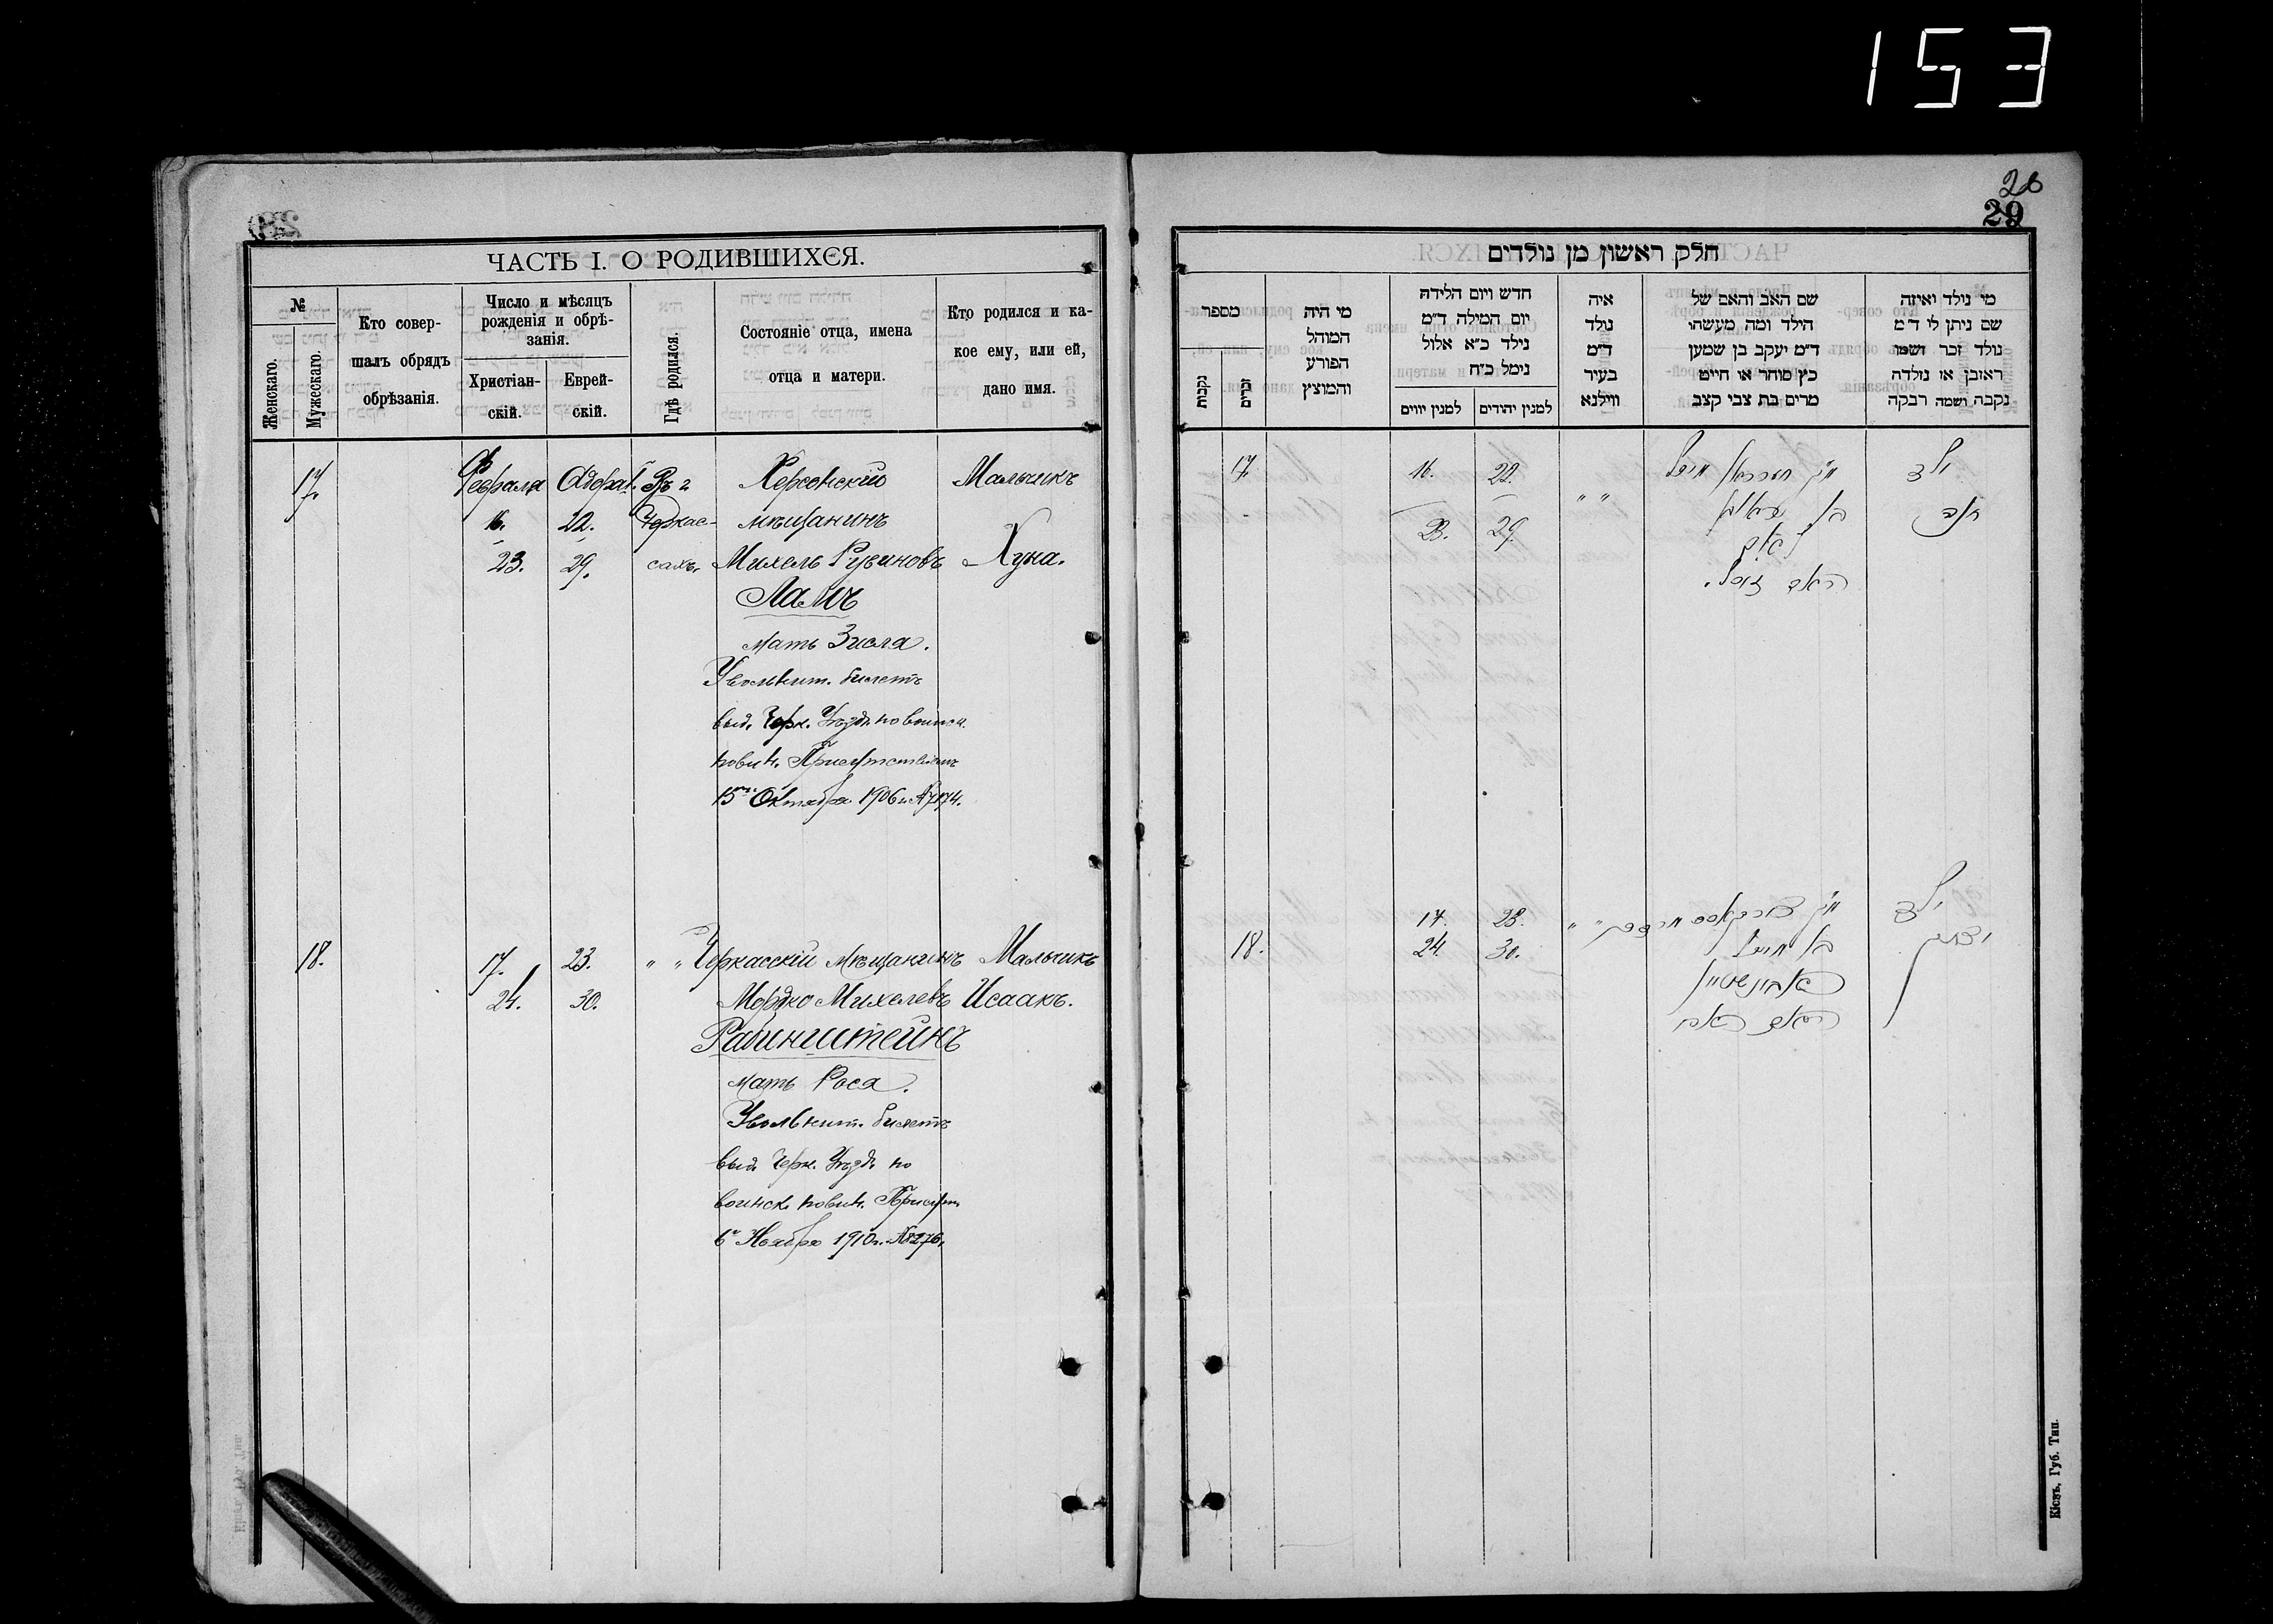 153
28
29
ЧАСТЬ I. О РОДИВШИХСЯ.
№
Женскаго.
Мужескаго.
Кто совер-
шалъ обрядъ
обрѣзанія.
Число и мѣсяцъ
рожденія и обрѣ-
занія.
Христіан-
скій.
Еврей-
скій.
Гдѣ родился.
Состояніе отца, имена
отца и матери.
Кто родился и ка-
кое ему, или ей,
дано имя.
17.
Февраля
16.
23.
Адора I.
22.
29.
Въ г.
Черкас-
сахъ.
Херсонскій
мѣщанинъ
Михель Рувиновъ
Ламъ
мать Зисля.
Увольнит. билетъ
выд. Черк. Уѣздн. по воинск.
повин. Присутствіемъ
15го Октября 1906 г. №7174.
Мальчикъ
Хуна.
18.
17.
24.
23.
30.
" "
Черкасскій мѣщанинъ
Мордко Михелевъ
Рабинштейнъ
мать Рося.
Увольнит. билетъ
выд. Черк. Уѣздн. по
воинск. повин. Присут.
6го Ноября 1910 г. №8276.
Мальчикъ
Исаакъ.
חלק ראשון מן נולדים
מספר
נקבות
זכרים
מי היה
המוהל
הפורע
והמוצץ
חדש ויום הלידה
יום המילה ד"מ
נילד כ"א אלול
נימל כ"ח
למנין יווים
למנין יהודים
איה
נולד
ד"מ
בעיר
ווילנא
שם האב והאם של
הילד ומה מעשהו
ד"מ יעקב בן שמען
כץ סוחר או חייט
מרים בת צבי קצב
מי נולד ואיזה
שם ניתן לו ד"מ
נולד זכר ושמו
ראובן או נולדה
נקבה ושמה רבקה
17.
16.
23.
22.
29.
" "
ילד
18.
17.
24.
23.
30.
" "
ילד
יצחק
Кіевъ, Губ. Тип.